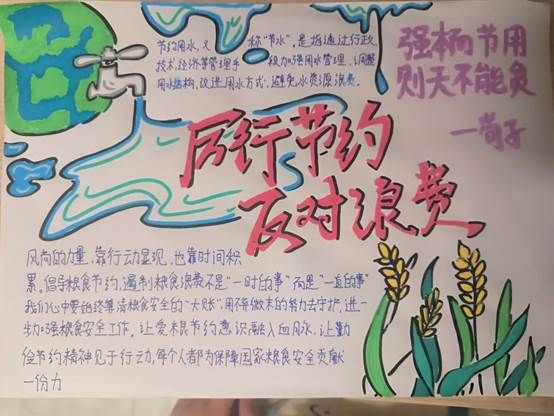 节约用水,又称"节水",是指通过行政
技术、经济等管理手段加强用水管理,调整
用水结构,改进用水方式,避免水资源浪费.
强本而节用
则天不能贫
一荀子
厉行节约
反对浪费
风尚的力量,靠行动显现,也靠时间积
累,倡导粮食节约,遏制粮食浪费不是"一时的事"而是"一直的事"
我们心中要始终算清粮食安全的"大账",用不懈做末的努力去守护,进一
步加强粮食安全工作,让爱粮节约意识融入血脉,让勤
俭节约精神见于行动,每个人都为保障国家粮食安全贡献
一份力